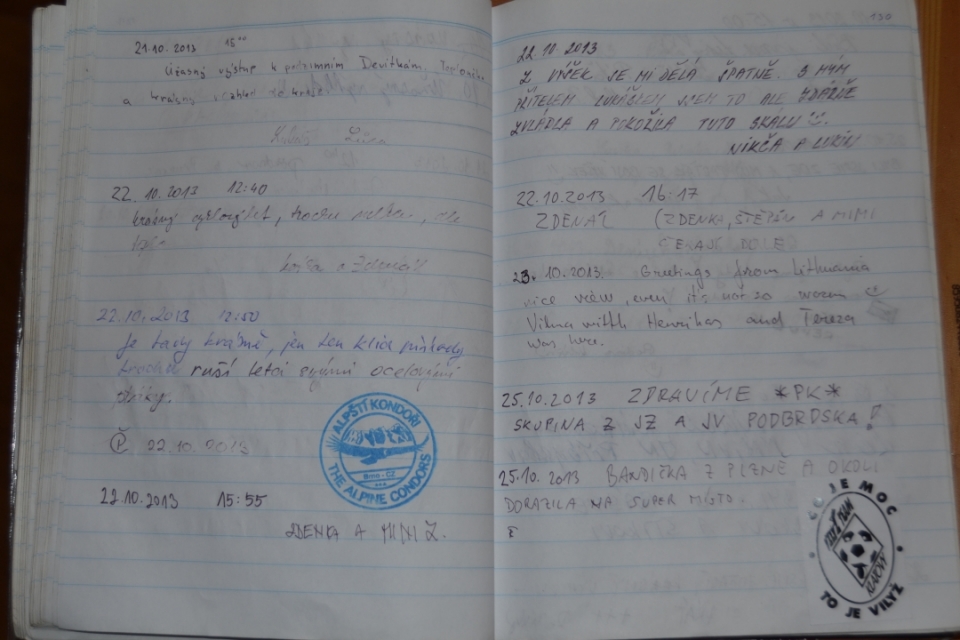 21.10.2013 15⁰⁰
Úžasný výstup k podzimním Devítkám.
a krásný
22.10.2013 12:40
krásný cyklovýlet, trochu
22.10.2013 12:50
Je tady krásně, jen ten klid přírody
trochu ruší letci svými ocelovými
ptáky.
Č 22.10.2013
ALPŠTÍ KONDOŘI
Brno - CZ
THE ALPINE CONDORS
22.10.2013 15:55
ZDENKA A MIMI Ž.
130
22.10.2013
Z VÝŠEK SE MI DĚLÁ ŠPATNĚ. S MÝM
PŘÍTELEM LUKÁŠEM JSEM TO ALE ZDÁRNĚ
ZVLÁDLA A POKOŘILA TUTO SKÁLU
NIKČA A LUKIN
22.10.2013 16:17
ZDENÁL (ZDENKA, ŠTĚPÁN A MIMI
ČEKAJÍ DOLE
23.10.2013. Greetings from Lithuania
nice view, even it's not so warm
Vilma with Henrikas and Tereza
was here.
25.10.2013 ZDRAVÍME *PK*
SKUPINA Z JZ A JV PODBRDSKA!
25.10.2013 BANDIČKA Z PLZNĚ A OKOLÍ
DORAZILA NA SUPER MÍSTO.
CO JE MOC
TO JE VILYŽ